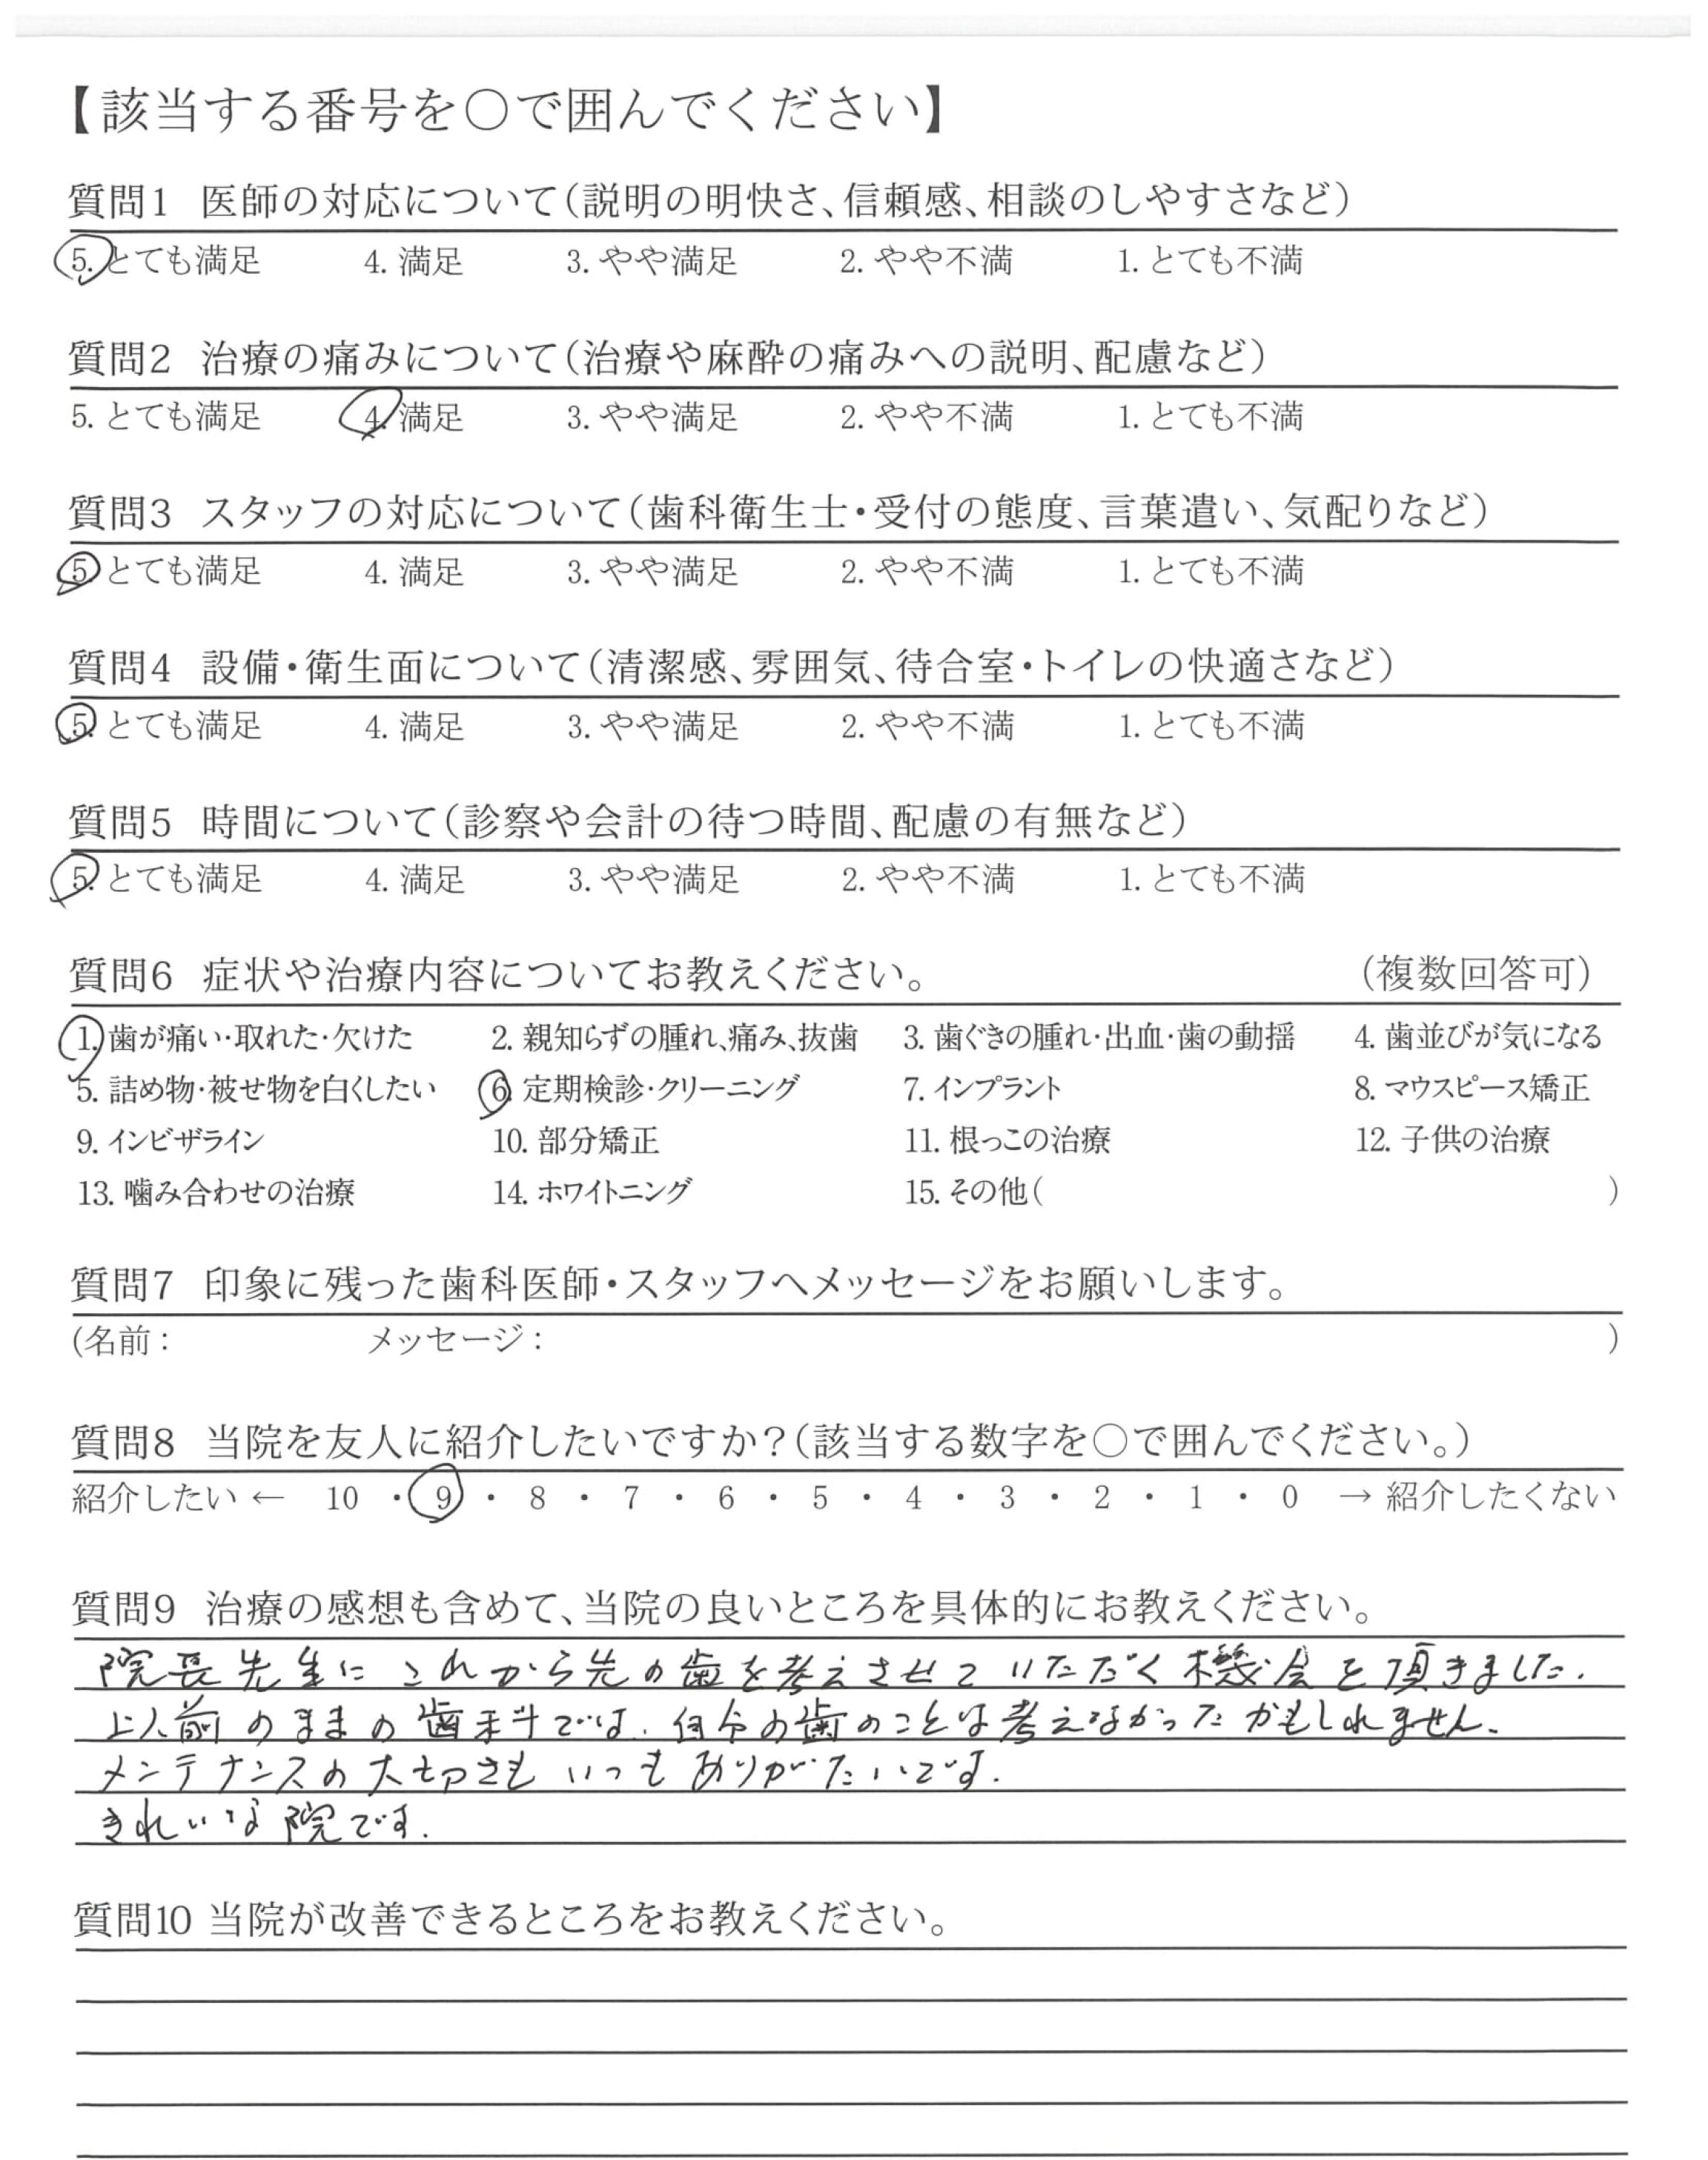 【該当する番号を○で囲んでください】
質問1 医師の対応について（説明の明快さ、信頼感、相談のしやすさなど）
5. とても満足 4. 満足 3. やや満足 2. やや不満 1. とても不満
質問2 治療の痛みについて（治療や麻酔の痛みへの説明、配慮など）
5. とても満足 4. 満足 3. やや満足 2. やや不満 1. とても不満
質問3 スタッフの対応について（歯科衛生士・受付の態度、言葉遣い、気配りなど）
5. とても満足 4. 満足 3. やや満足 2. やや不満 1. とても不満
質問4 設備・衛生面について（清潔感、雰囲気、待合室・トイレの快適さなど）
5. とても満足 4. 満足 3. やや満足 2. やや不満 1. とても不満
質問5 時間について（診察や会計の待つ時間、配慮の有無など）
5. とても満足 4. 満足 3. やや満足 2. やや不満 1. とても不満
質問6 症状や治療内容についてお教えください。 （複数回答可）
1. 歯が痛い・取れた・欠けた 2. 親知らずの腫れ、痛み、抜歯 3. 歯ぐきの腫れ・出血・歯の動揺 4. 歯並びが気になる
5. 詰め物・被せ物を白くしたい 6. 定期検診・クリーニング 7. インプラント 8. マウスピース矯正
9. インビザライン 10. 部分矯正 11. 根っこの治療 12. 子供の治療
13. 噛み合わせの治療 14. ホワイトニング 15. その他（ ）
質問7 印象に残った歯科医師・スタッフへメッセージをお願いします。
（名前： メッセージ： ）
質問8 当院を友人に紹介したいですか？（該当する数字を○で囲んでください。）
紹介したい ← 10 ・ 9 ・ 8 ・ 7 ・ 6 ・ 5 ・ 4 ・ 3 ・ 2 ・ 1 ・ 0 → 紹介したくない
質問9 治療の感想も含めて、当院の良いところを具体的にお教えください。
院長先生にこれから先の歯を考えさせていただく機会を頂きました.
以前のままの歯科では、自分の歯のことは考えなかったかもしれません.
メンテナンスの大切さもいつもありがたいです.
きれいな院です.
質問10 当院が改善できるところをお教えください。